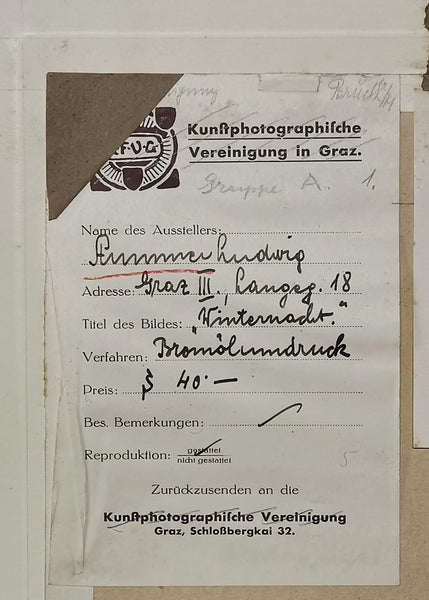 K.F.V.G
Kunstphotographische
Vereinigung in Graz.
Gruppe A. 1.
Name des Ausstellers:
Ludwig
Adresse: Graz III., Langeg. 18
Titel des Bildes: „Winternacht."
Verfahren: Bromölumdruck
Preis: S 40·—
Bes. Bemerkungen:
Reproduktion: gestattet
nicht gestattet
5
Zurückzusenden an die
Kunstphotographische Vereinigung
Graz, Schloßbergkai 32.